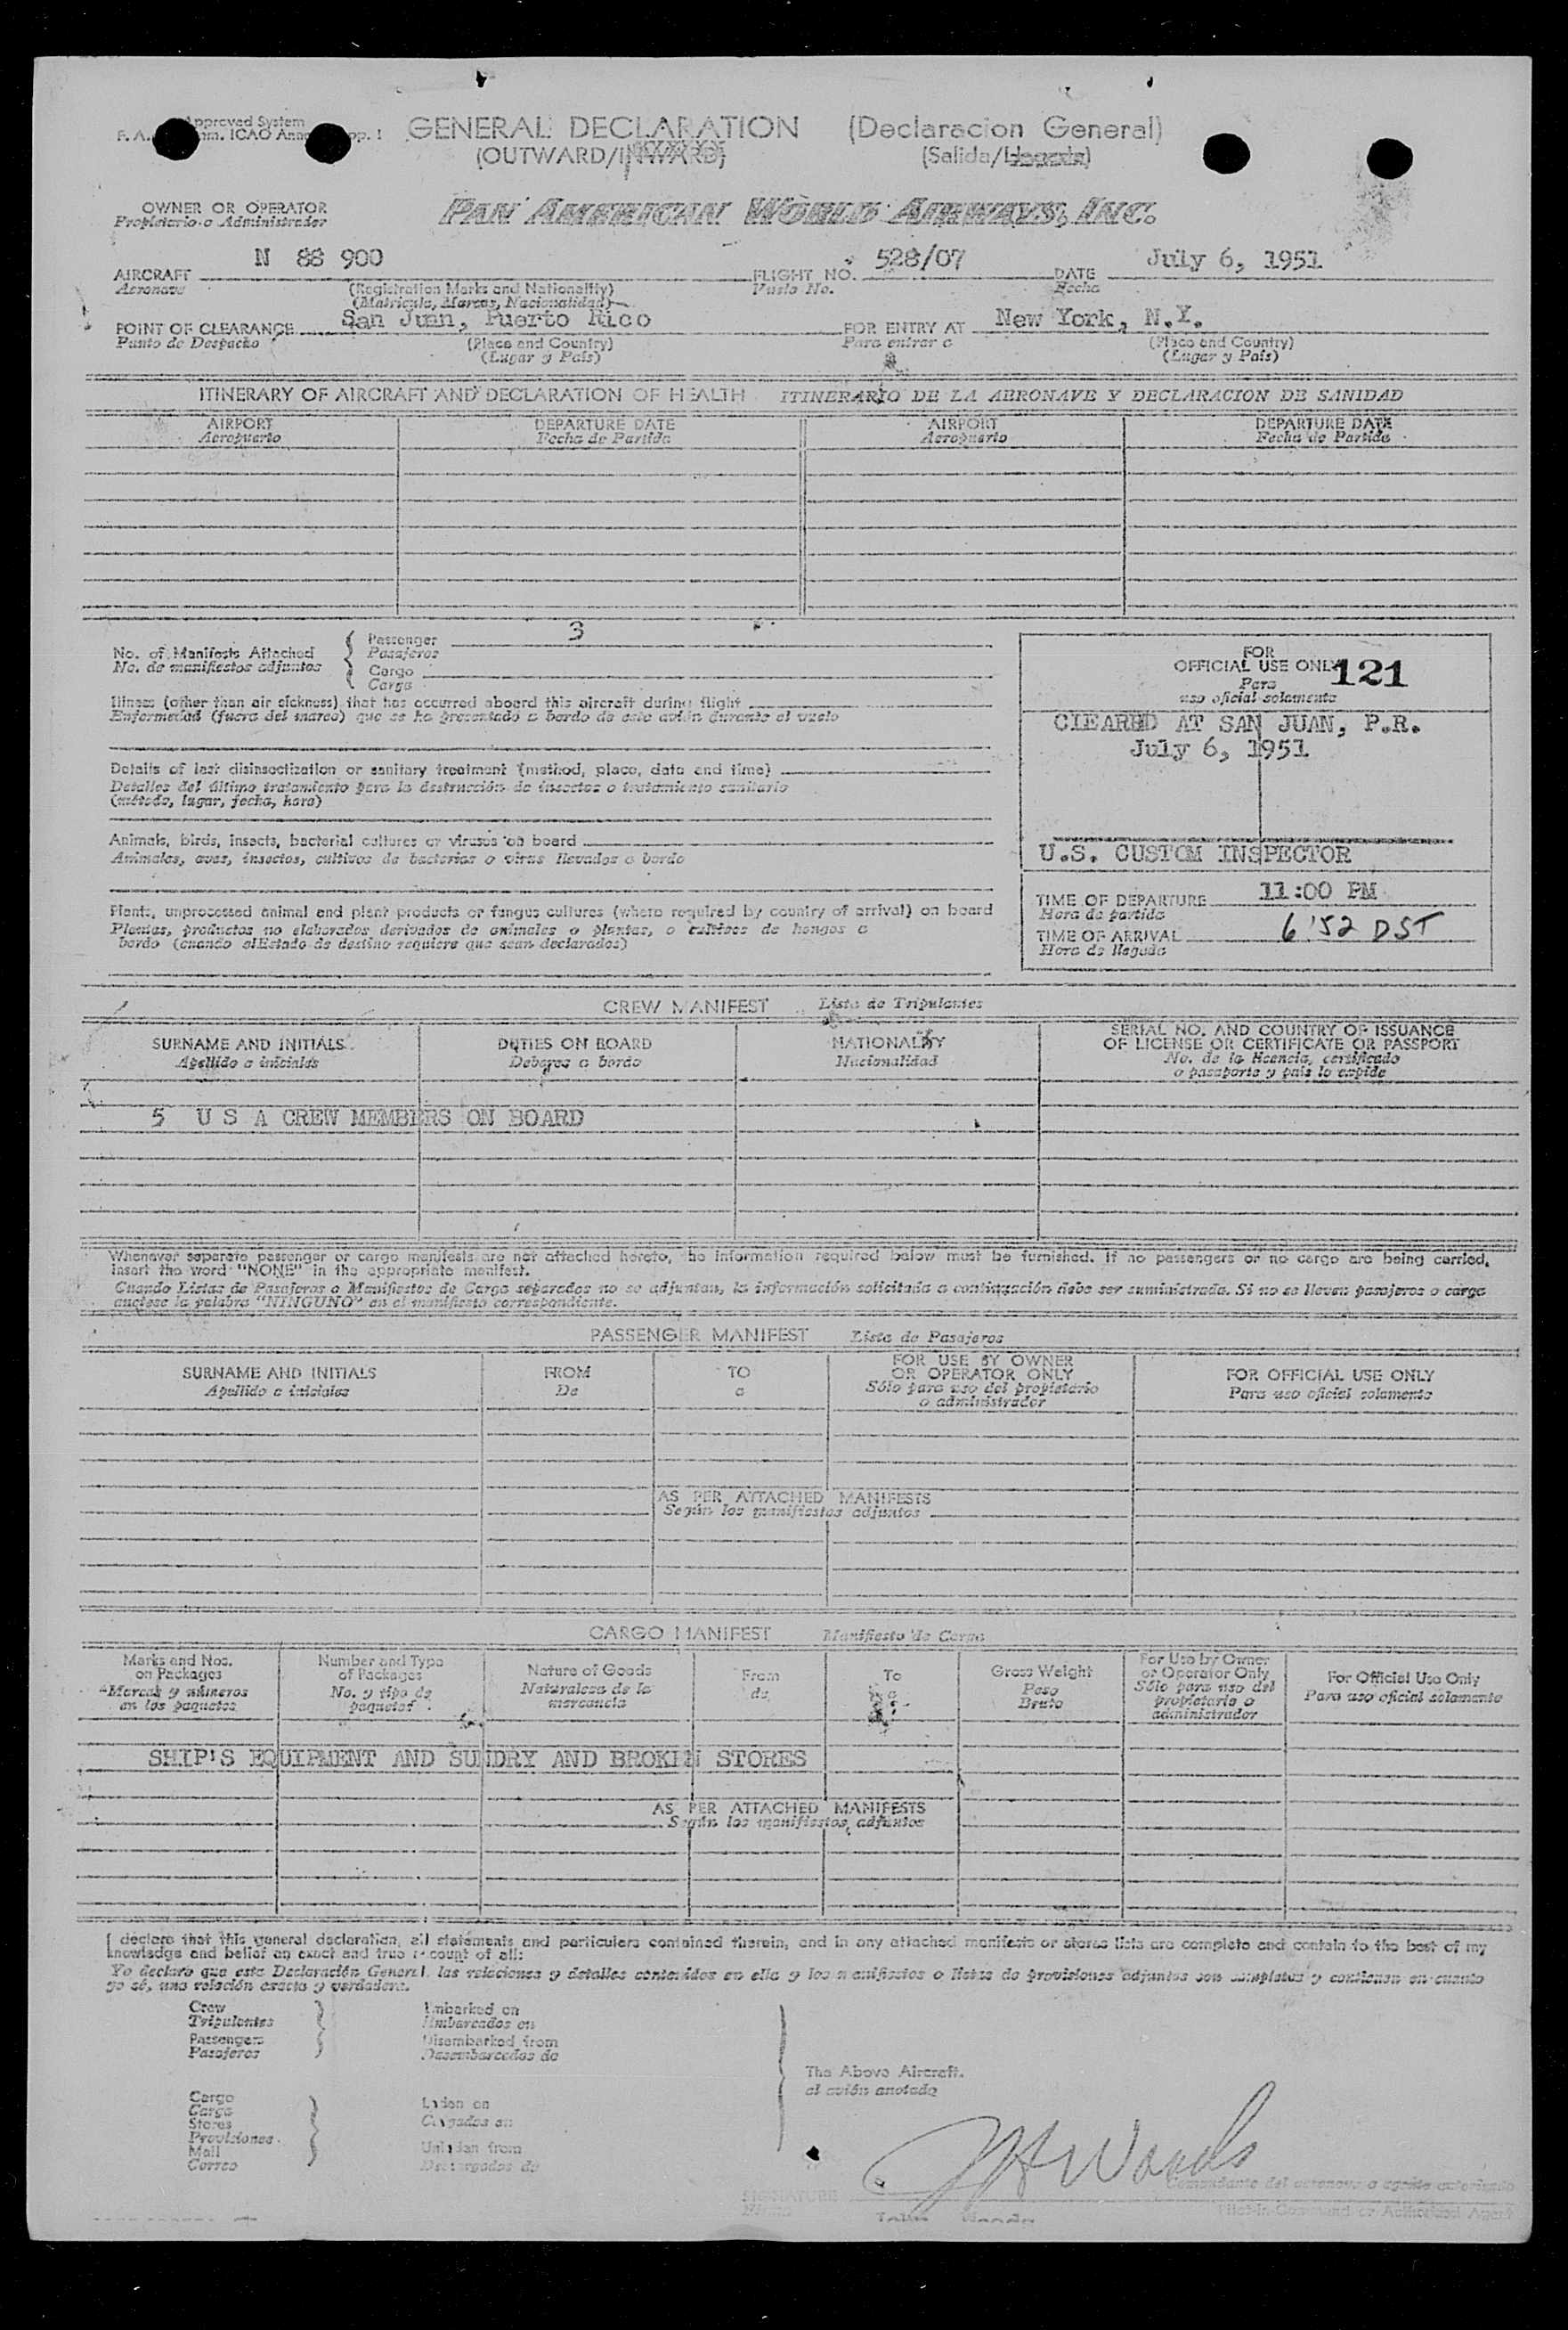 GENERAL DECLARATION (Declaracion General)
(OUTWARD/INWARD) (Salida/Llegada)
OWNER OR OPERATOR
Propietario o Administrador
PAN AMERICAN WORLD AIRWAYS, INC.
AIRCRAFT N 88 900 FLIGHT NO. 528/07 DATE July 6, 1951
Aeronave (Registration Marks and Nationality) Vuelo No. Fecha
(Matricula, Marcas, Nacionalidad)
POINT OF CLEARANCE San Juan, Puerto Rico FOR ENTRY AT New York, N.Y.
Punto de Despacho (Place and Country) Para entrar a (Place and Country)
(Lugar y País) (Lugar y País)
ITINERARY OF AIRCRAFT AND DECLARATION OF HEALTH ITINERARIO DE LA AERONAVE Y DECLARACION DE SANIDAD
AIRPORT DEPARTURE DATE AIRPORT DEPARTURE DATE
Aeropuerto Fecha de Partida Aeropuerto Fecha de Partida
No. of Manifests Attached
No. de manifiestos adjuntos
Passenger 3
Pasajeros
Cargo
Carga
Illness (other than air sickness) that has occurred aboard this aircraft during flight
Enfermedad (fuera del mareo) que se ha presentado a bordo de este avión durante el vuelo
Details of last disinsectization or sanitary treatment (method, place, date and time)
Detalles del último tratamiento para la destrucción de insectos o tratamiento sanitario
(método, lugar, fecha, hora)
Animals, birds, insects, bacterial cultures or viruses on board
Animales, aves, insectos, cultivos de bacterias o virus llevados a bordo
Plants, unprocessed animal and plant products or fungus cultures (where required by country of arrival) on board
Plantas, productos no elaborados derivados de animales o plantas, o cultivos de hongos a
bordo (cuando el Estado de destino requiere que sean declarados)
FOR
OFFICIAL USE ONLY 121
Para
uso oficial solamente
CLEARED AT SAN JUAN, P.R.
July 6, 1951
U.S. CUSTOM INSPECTOR
TIME OF DEPARTURE 11:00 PM
Hora de partida
TIME OF ARRIVAL 6:52 DST
Hora de llegada
CREW MANIFEST Lista de Tripulantes
SURNAME AND INITIALS DUTIES ON BOARD NATIONALITY SERIAL NO. AND COUNTRY OF ISSUANCE
OF LICENSE OR CERTIFICATE OR PASSPORT
Apellido e iniciales Deberes a bordo Nacionalidad No. de la licencia, certificado
o pasaporte y país lo expide
5 U S A CREW MEMBERS ON BOARD
Whenever separate passenger or cargo manifests are not attached hereto, the information required below must be furnished. If no passengers or no cargo are being carried,
insert the word "NONE" in the appropriate manifest.
Cuando Listas de Pasajeros o Manifiestos de Carga separados no se adjuntan, la información solicitada a continuación debe ser suministrada. Si no se llevan pasajeros o carga
anótese la palabra "NINGUNO" en el manifiesto correspondiente.
PASSENGER MANIFEST Lista de Pasajeros
SURNAME AND INITIALS FROM TO FOR USE BY OWNER
OR OPERATOR ONLY FOR OFFICIAL USE ONLY
Apellido e iniciales De a Sólo para uso del propietario
o administrador Para uso oficial solamente
AS PER ATTACHED MANIFESTS
Según los manifiestos adjuntos
CARGO MANIFEST Manifiesto de Carga
Marks and Nos.
on Packages
Marcas y números
en los paquetes
Number and Type
of Packages
No. y tipo de
paquetes
Nature of Goods
Naturaleza de la
mercancía
From
de
To
a
Gross Weight
Peso
Bruto
For Use by Owner
or Operator Only
Sólo para uso del
propietario o
administrador
For Official Use Only
Para uso oficial solamente
SHIP'S EQUIPMENT AND SUNDRY AND BROKEN STORES
AS PER ATTACHED MANIFESTS
Según los manifiestos adjuntos
I declare that this general declaration, all statements and particulars contained therein, and in any attached manifests or stores lists are complete and contain to the best of my
knowledge and belief an exact and true account of all:
Yo declaro que esta Declaración General, las relaciones y detalles contenidos en ella y los manifiestos o listas de provisiones adjuntos son completos y contienen en cuanto
yo sé, una relación exacta y verdadera.
Crew
Tripulantes
Passengers
Pasajeros
Embarked on
Embarcados en
Disembarked from
Desembarcados de
The Above Aircraft.
el avión anotado
Cargo
Carga
Stores
Provisiones
Mail
Correo
Laden on
Cargados en
Unladen from
Descargados de
Woods
Comandante del aeronave o agente autorizado
SIGNATURE
Firma
Pilot-in-Command or Authorized Agent
John Woods